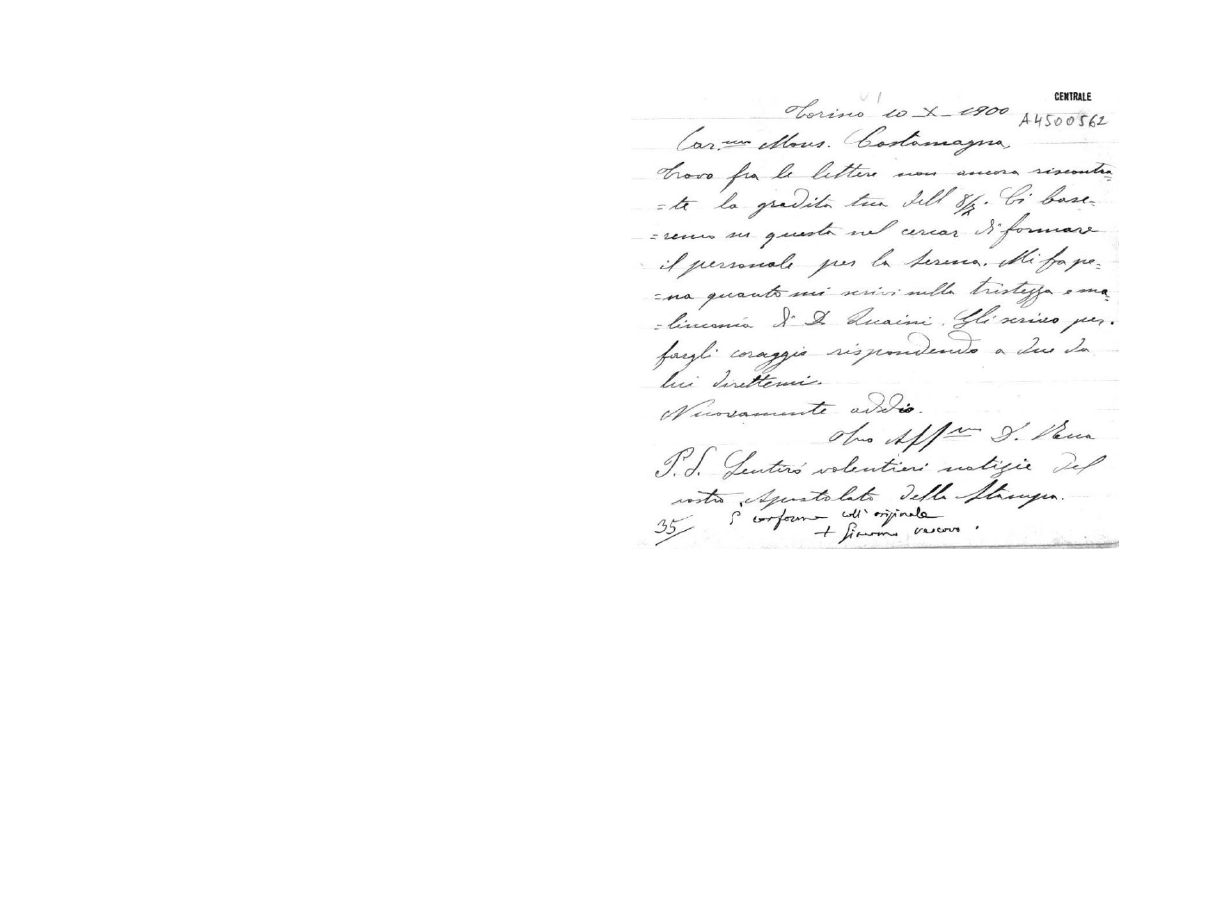 CENTRALE
Torino 10_X_1900
A4500562
Car.mo Mons. Costamagna,
Trovo fra le lettere non ancora riscontra=
=te la gradita tua dell' 8/X. Ci base=
=remo su questa nel cercar di formare
il personale per la Serena. Mi fa pe=
=na quanto mi scrivi sulla tristezza e ma=
=linconia di D. Quaini. Gli scrivo per
fargli coraggio rispondendo a due da
lui direttemi.
Nuovamente addio.
Tuo Aff.mo D. Rua
P.S. Sentirò volentieri notizie del
vostro Apostolato della Stampa.
35/
È conforme coll' originale
+ Giacomo vescovo.